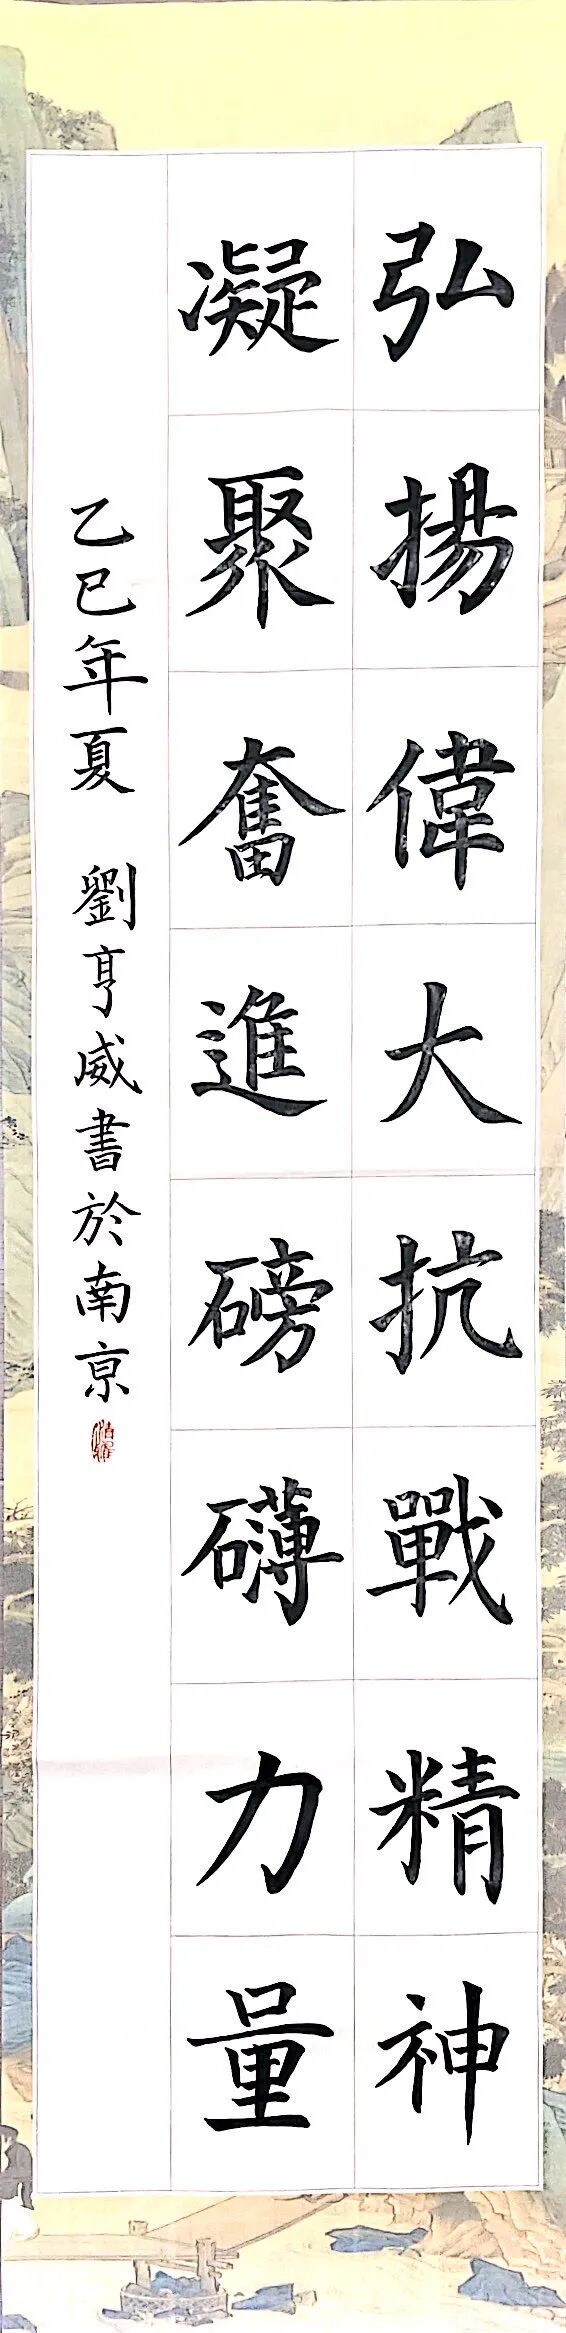 弘揚偉大抗戰精神
凝聚奮進磅礴力量
乙巳年夏 劉亨威書於南京